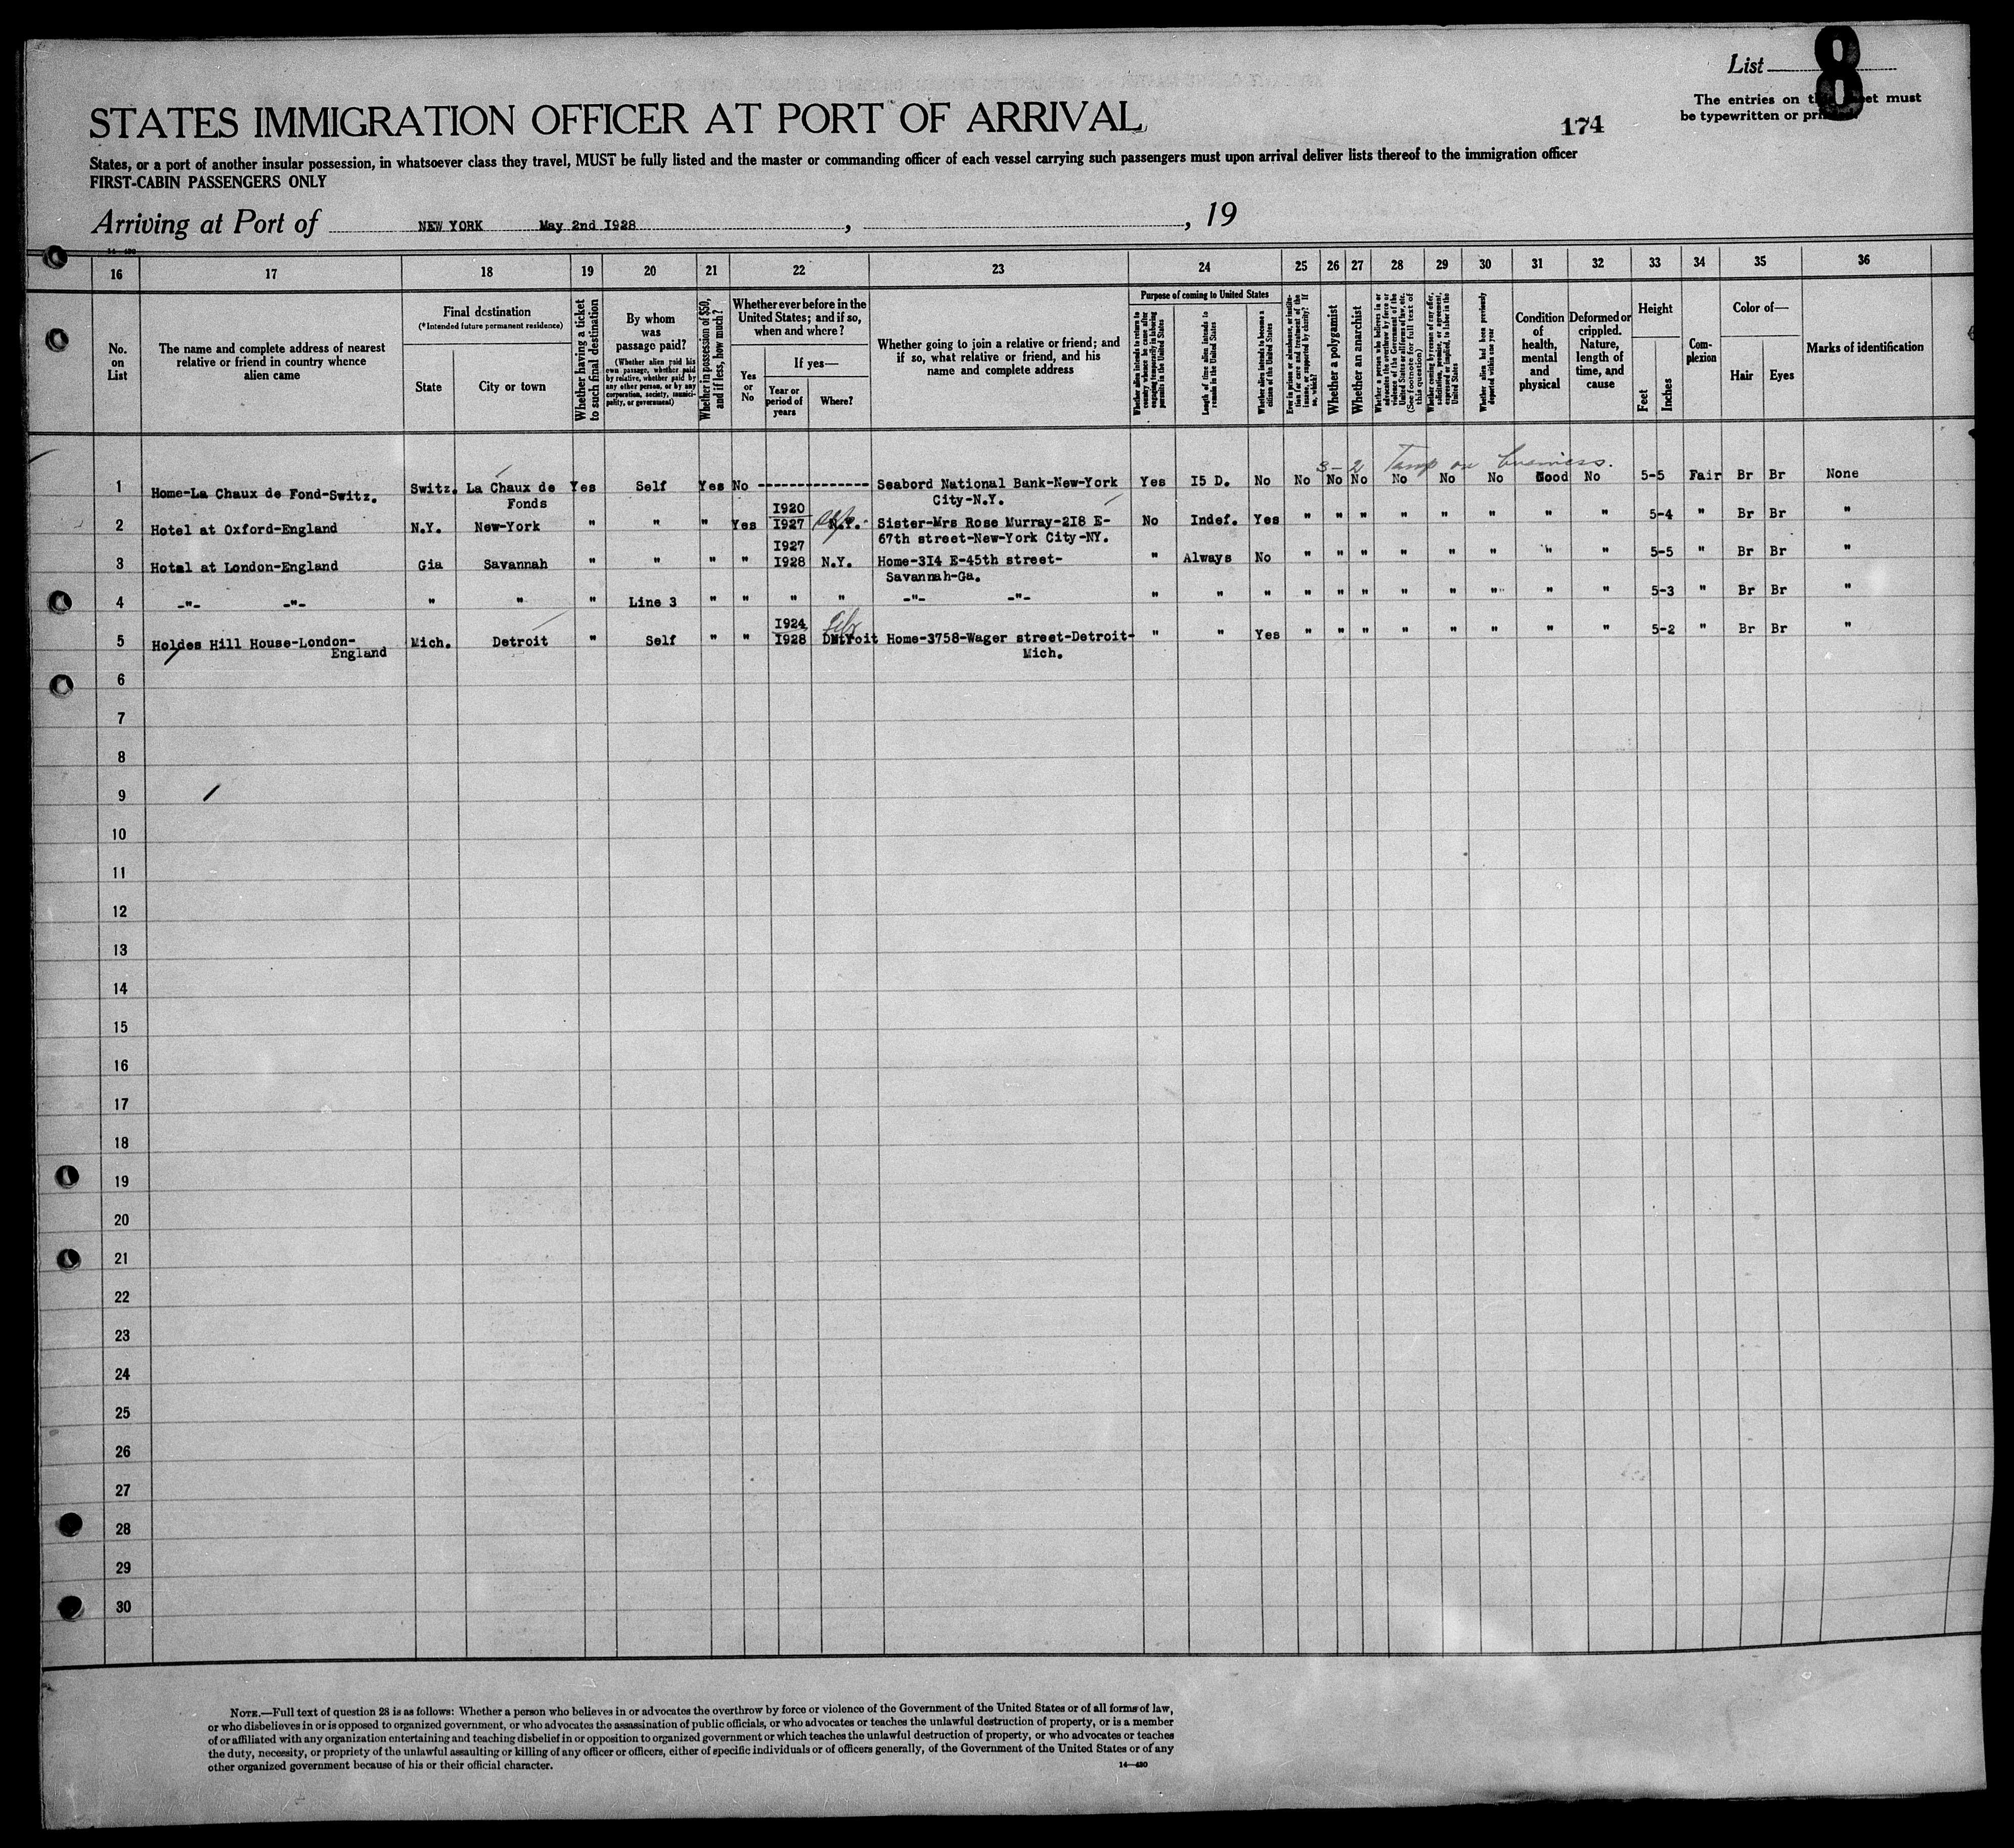 List
8
The entries on this sheet must
be typewritten or printed.
STATES IMMIGRATION OFFICER AT PORT OF ARRIVAL
174
States, or a port of another insular possession, in whatsoever class they travel, MUST be fully listed and the master or commanding officer of each vessel carrying such passengers must upon arrival deliver lists thereof to the immigration officer
FIRST-CABIN PASSENGERS ONLY
Arriving at Port of NEW YORK May 2nd 1928, , 19
16 17 18 19 20 21 22 23 24 25 26 27 28 29 30 31 32 33 34 35 36
No. on List
The name and complete address of nearest relative or friend in country whence alien came
Final destination
(*Intended future permanent residence)
State
City or town
Whether having a ticket to such final destination
By whom was passage paid?
(Whether alien paid his own passage, whether paid by relative, whether paid by any other person, or by any corporation, society, municipality, or government)
Whether in possession of $50, and if less, how much?
Whether ever before in the United States; and if so, when and where?
Yes or No
If yes—
Year or period of years
Where?
Whether going to join a relative or friend; and if so, what relative or friend, and his name and complete address
Purpose of coming to United States
Whether alien intends to return to country whence he came after engaging temporarily in laboring pursuits in the United States
Length of time alien intends to remain in the United States
Whether alien intends to become a citizen of the United States
Ever in prison or almshouse, or institution for care and treatment of the insane, or supported by charity? If so, which?
Whether a polygamist
Whether an anarchist
Whether a person who believes in or advocates the overthrow by force or violence of the Government of the United States or all forms of law, etc. (See footnote for full text of this question)
Whether coming by reason of any offer, solicitation, promise, or agreement, expressed or implied, to labor in the United States
Whether alien had been previously deported within one year
Condition of health, mental and physical
Deformed or crippled. Nature, length of time, and cause
Height
Feet
Inches
Complexion
Color of—
Hair
Eyes
Marks of identification
3-2 Temp on business.
1 Home-La Chaux de Fond-Switz. Switz. La Chaux de Yes Self Yes No --------------- Seabord National Bank-New-York Yes I5 D. No No No No No No No Good No 5-5 Fair Br Br None
Fonds City-N.Y.
I920
2 Hotel at Oxford-England N.Y. New-York " " " Yes I927 N.Y. Sister-Mrs Rose Murray-2I8 E- No Indef. Yes " " " " " " " " 5-4 " Br Br "
67th street-New-York City-NY.
I927
3 Hotal at London-England Gia Savannah " " " " I928 N.Y. Home-3I4 E-45th street- " Always No " " " " " " " " 5-5 " Br Br "
Savannah-Ga.
4 -"- -"- " " " Line 3 " " " " -"- -"- " " " " " " " " " " " 5-3 " Br Br "
I924
5 Holdes Hill House-London- Mich. Detroit " Self " " I928 Detroit Home-3758-Wager street-Detroit- " " Yes " " " " " " " " 5-2 " Br Br "
England Mich.
6
7
8
9
10
11
12
13
14
15
16
17
18
19
20
21
22
23
24
25
26
27
28
29
30
NOTE.—Full text of question 28 is as follows: Whether a person who believes in or advocates the overthrow by force or violence of the Government of the United States or of all forms of law,
or who disbelieves in or is opposed to organized government, or who advocates the assassination of public officials, or who advocates or teaches the unlawful destruction of property, or is a member
of or affiliated with any organization entertaining and teaching disbelief in or opposition to organized government or which teaches the unlawful destruction of property, or who advocates or teaches
the duty, necessity, or propriety of the unlawful assaulting or killing of any officer or officers, either of specific individuals or of officers generally, of the Government of the United States or of any
other organized government because of his or their official character.
14—430